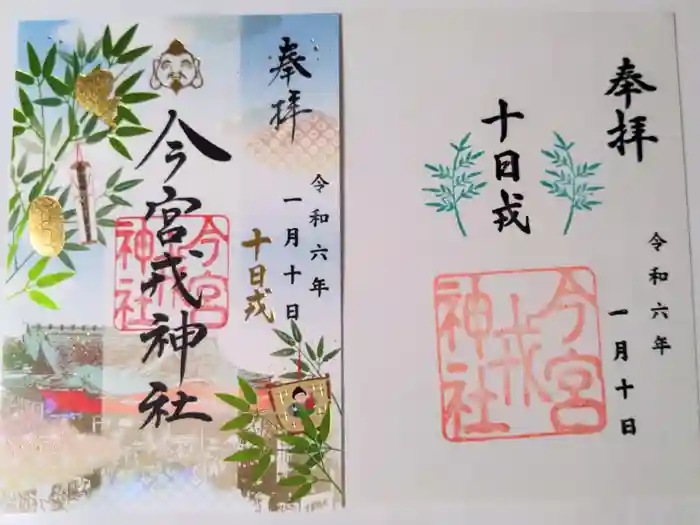 奉拝
令和六年
一月十日
十日戎
今宮戎神社
今宮
戎
神社
奉拝
令和六年
一月十日
十日戎
今宮
戎
神社